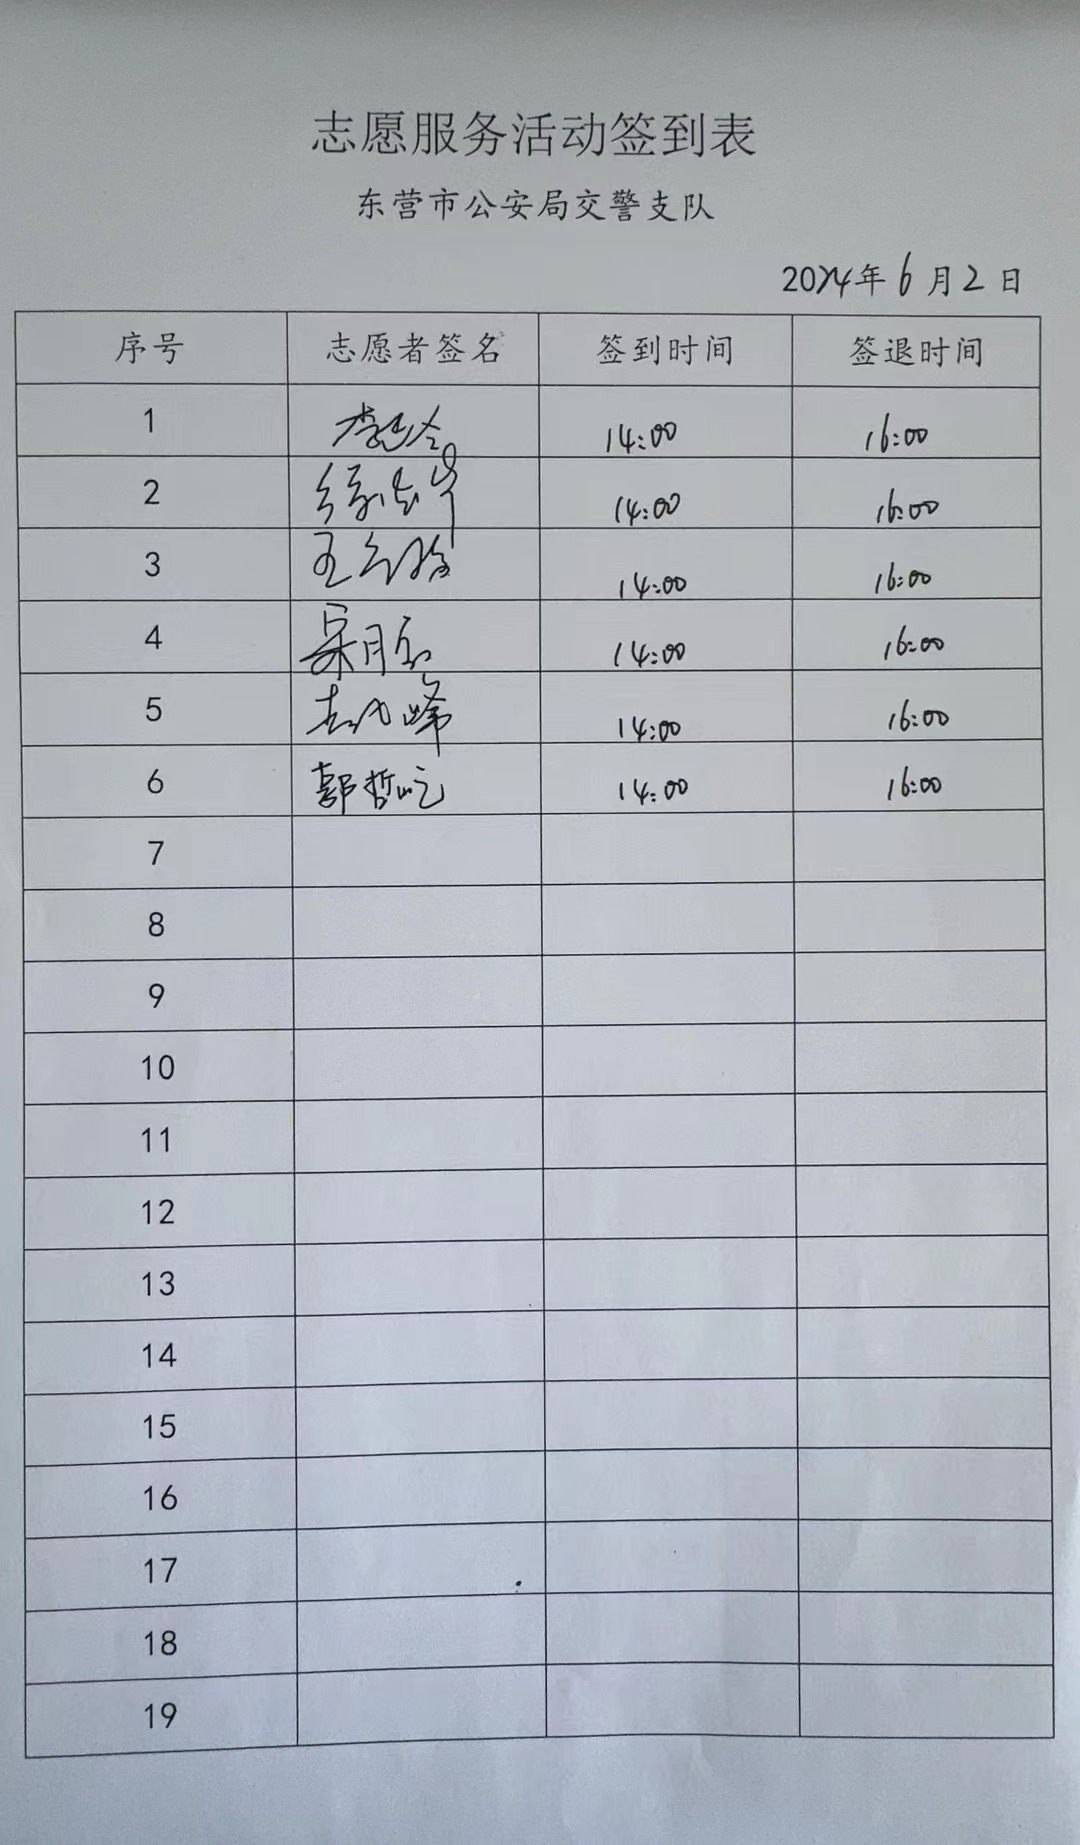 志愿服务活动签到表
东营市公安局交警支队
2024年6月2日
序号 志愿者签名 签到时间 签退时间
1 李 14:00 16:00
2 徐 14:00 16:00
3 王 14:00 16:00
4 宋月 14:00 16:00
5 峰 14:00 16:00
6 郭哲屹 14:00 16:00
7
8
9
10
11
12
13
14
15
16
17
18
19